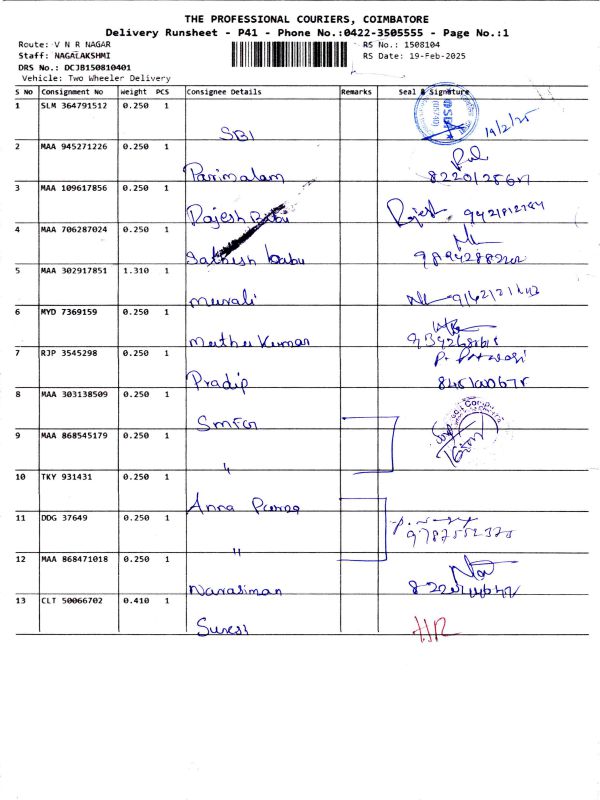 THE PROFESSIONAL COURIERS, COIMBATORE
Delivery Runsheet - P41 - Phone No.:0422-3505555 - Page No.:1
Route: V N R NAGAR
RS No.: 1508104
Staff: NAGALAKSHMI
RS Date: 19-Feb-2025
DRS No.: DCJB150810401
Vehicle: Two Wheeler Delivery
S NO Consignment No Weight PCS Consignee Details Remarks Seal & Signature
1 SLM 364791512 0.250 1
SBI 19/2/25
2 MAA 945271226 0.250 1
Parimalam
3 MAA 109617856 0.250 1
Rajesh Babu Rajesh
4 MAA 706287024 0.250 1
Sathish babu
5 MAA 302917851 1.310 1
murali
6 MYD 7369159 0.250 1
Muthu Kumar
7 RJP 3545298 0.250 1
Pradip
8 MAA 303138509 0.250 1
9 MAA 868545179 0.250 1
"
10 TKY 931431 0.250 1
Anna
11 DDG 37649 0.250 1
"
12 MAA 868471018 0.250 1
Narasiman
13 CLT 50066702 0.410 1